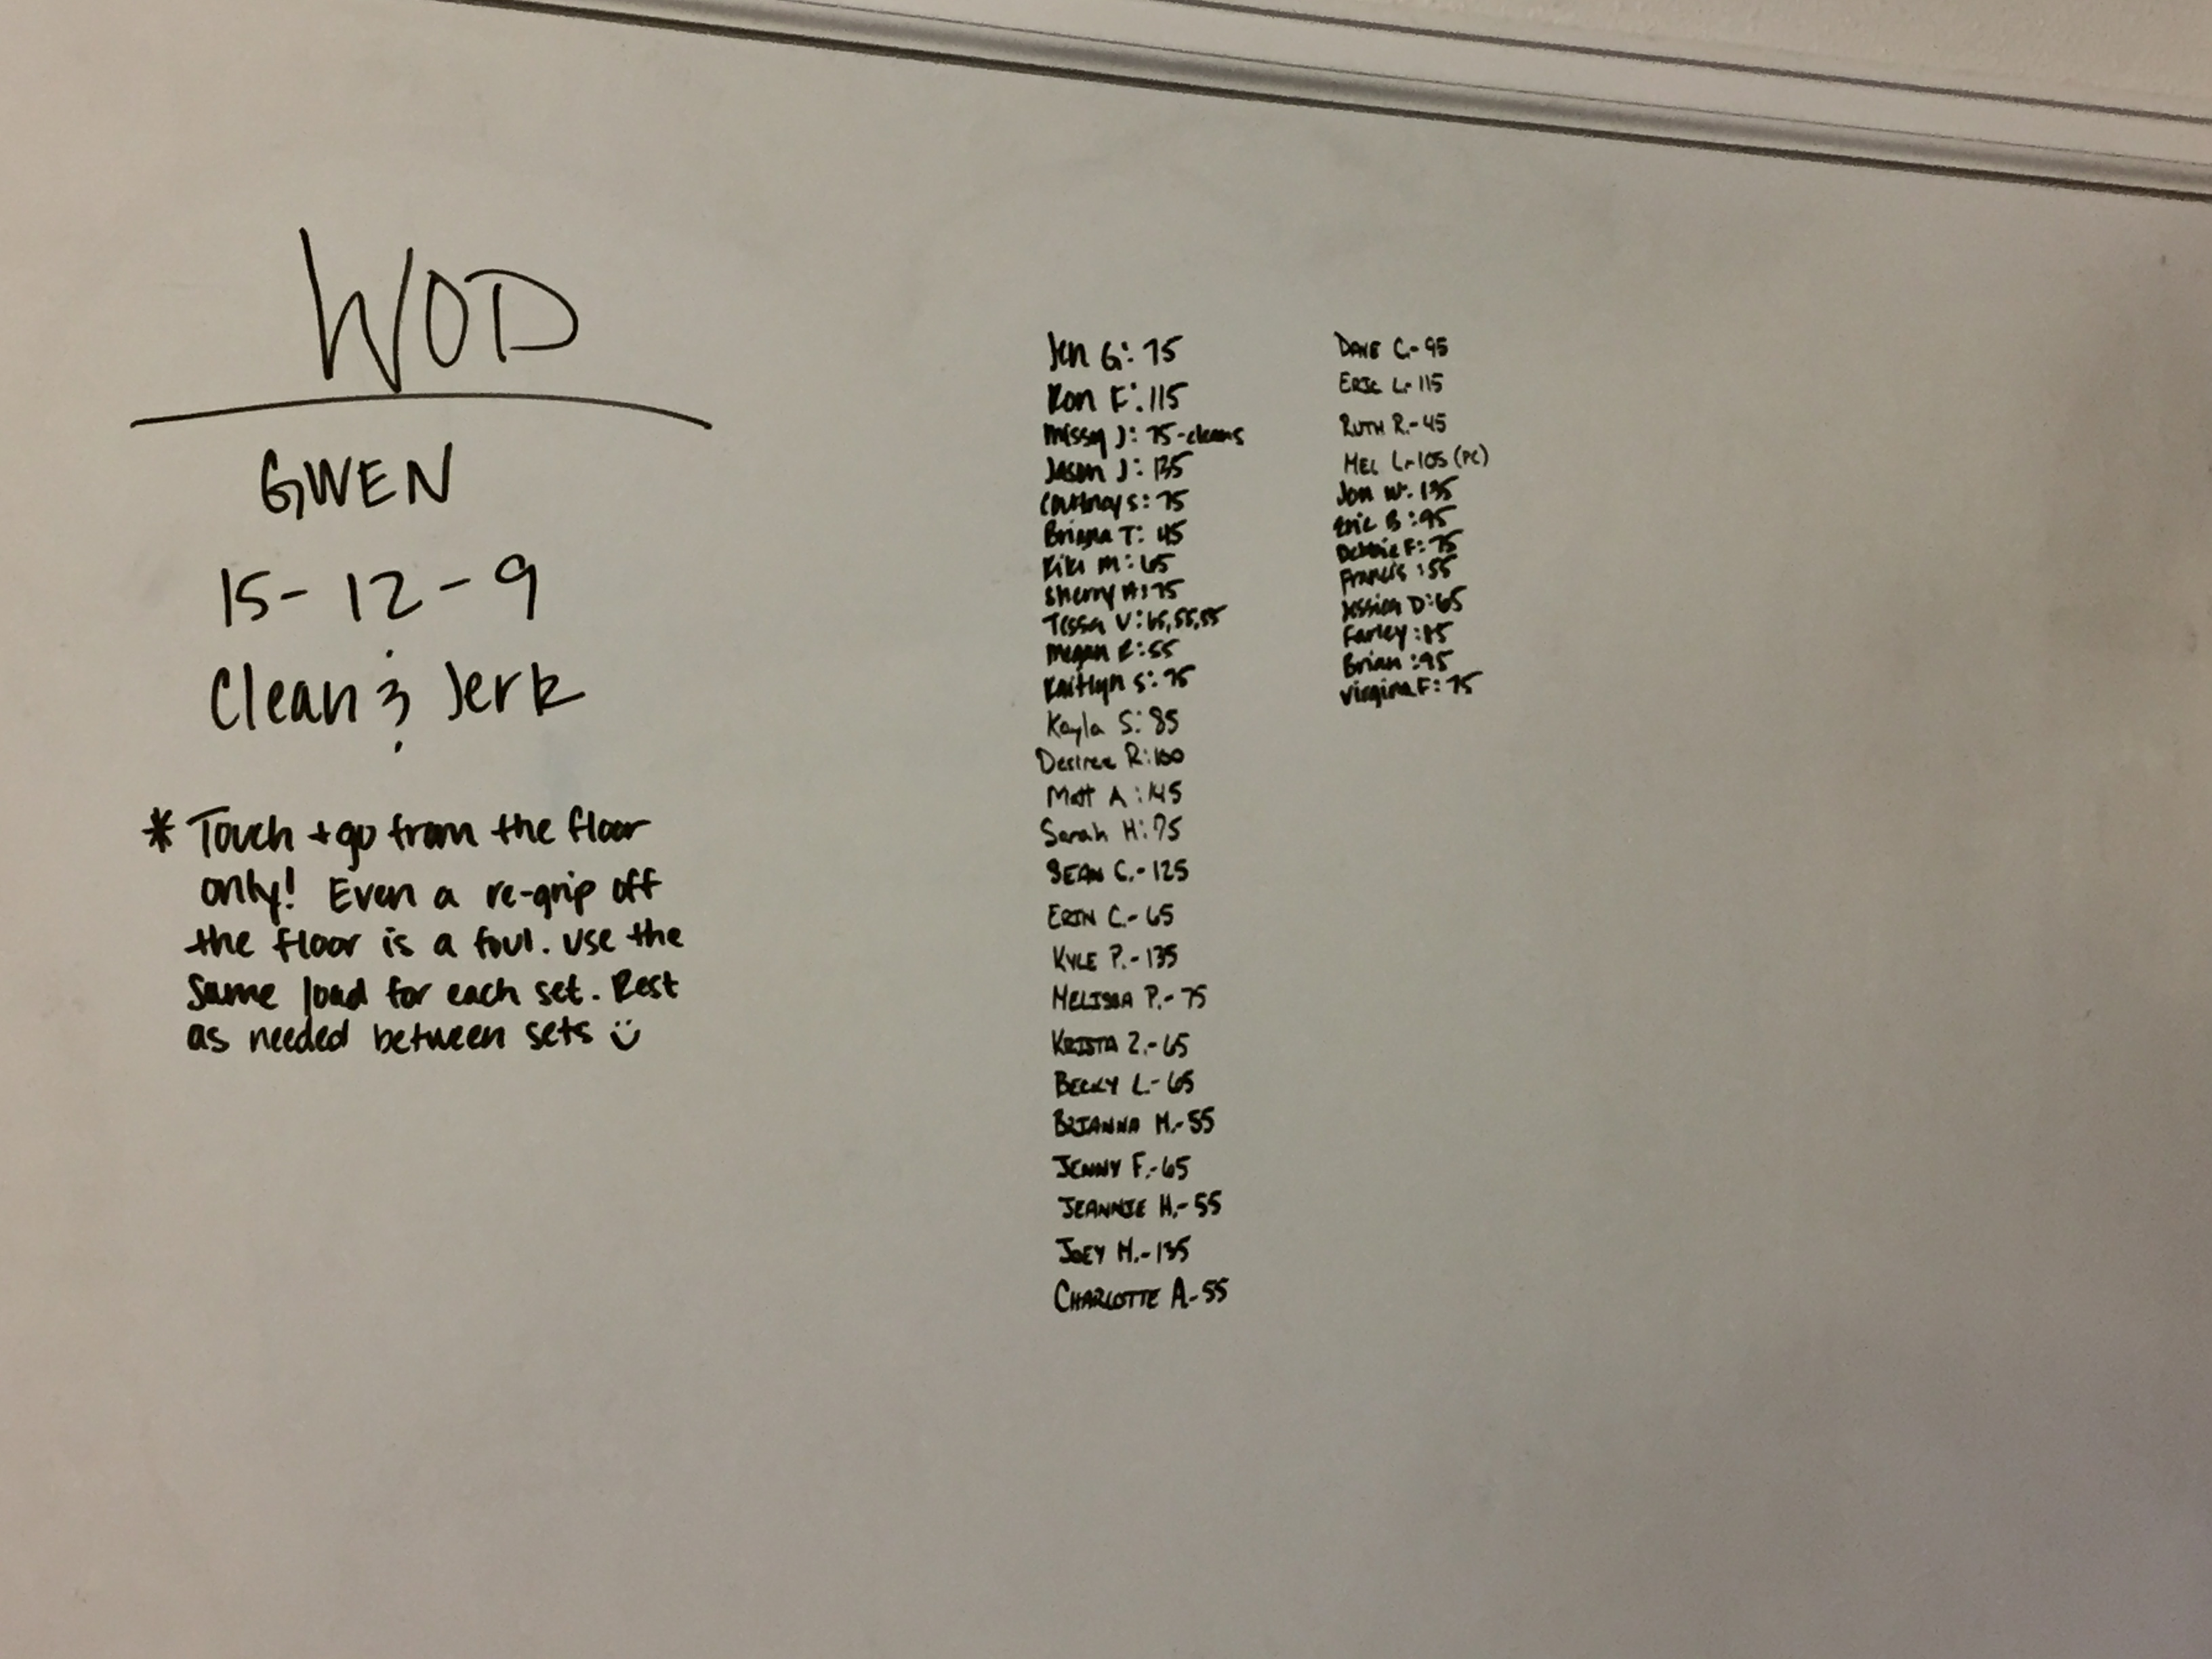 WOD
GWEN
15-12-9
Clean & Jerk
* Touch + go from the floor
only! Even a re-grip off
the floor is a foul. Use the
same load for each set. Rest
as needed between sets
Jen G: 75
Ron F: 115
Missy J: 75-cleans
Jason J: 135
Courtney S: 75
Briana T: 45
Kiki M: 65
Sherry H: 75
Tessa V: 65,55,55
Megan R: 55
Kaitlyn S: 75
Kayla S: 85
Desiree R: 100
Matt A: 145
Sarah H: 75
SEAN C.- 125
ERIN C.- 65
KYLE P.- 135
MELISSA P.- 75
KRISTA Z.- 65
BECKY L.- 65
BRIANNA M.- 55
JENNY F.- 65
JEANNIE H.- 55
JOEY M.- 135
CHARLOTTE A.- 55
DAVE C.- 95
ERIC L.- 115
RUTH R.- 45
MEL L.- 105 (PC)
Jon W: 135
Eric B: 95
Debbie F: 75
Francis: 55
Jessica D: 65
Farley: 85
Brian: 95
Virginia F: 75